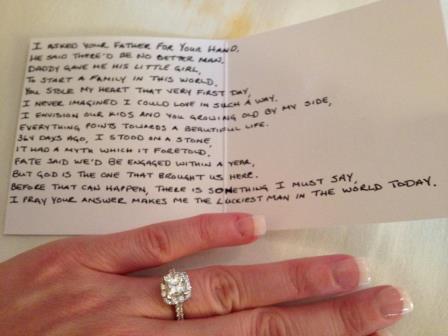 I ASKED YOUR FATHER FOR YOUR HAND.
HE SAID THERE'D BE NO BETTER MAN.
DADDY GAVE ME HIS LITTLE GIRL,
TO START A FAMILY IN THIS WORLD.
YOU STOLE MY HEART THAT VERY FIRST DAY,
I NEVER IMAGINED I COULD LOVE IN SUCH A WAY.
I ENVISION OUR KIDS AND YOU GROWING OLD BY MY SIDE,
EVERYTHING POINTS TOWARDS A BEAUTIFUL LIFE.
364 DAYS AGO, I STOOD ON A STONE,
IT HAD A MYTH WHICH IT FORETOLD.
FATE SAID WE'D BE ENGAGED WITHIN A YEAR,
BUT GOD IS THE ONE THAT BROUGHT US HERE.
BEFORE THAT CAN HAPPEN, THERE IS SOMETHING I MUST SAY,
I PRAY YOUR ANSWER MAKES ME THE LUCKIEST MAN IN THE WORLD TODAY.